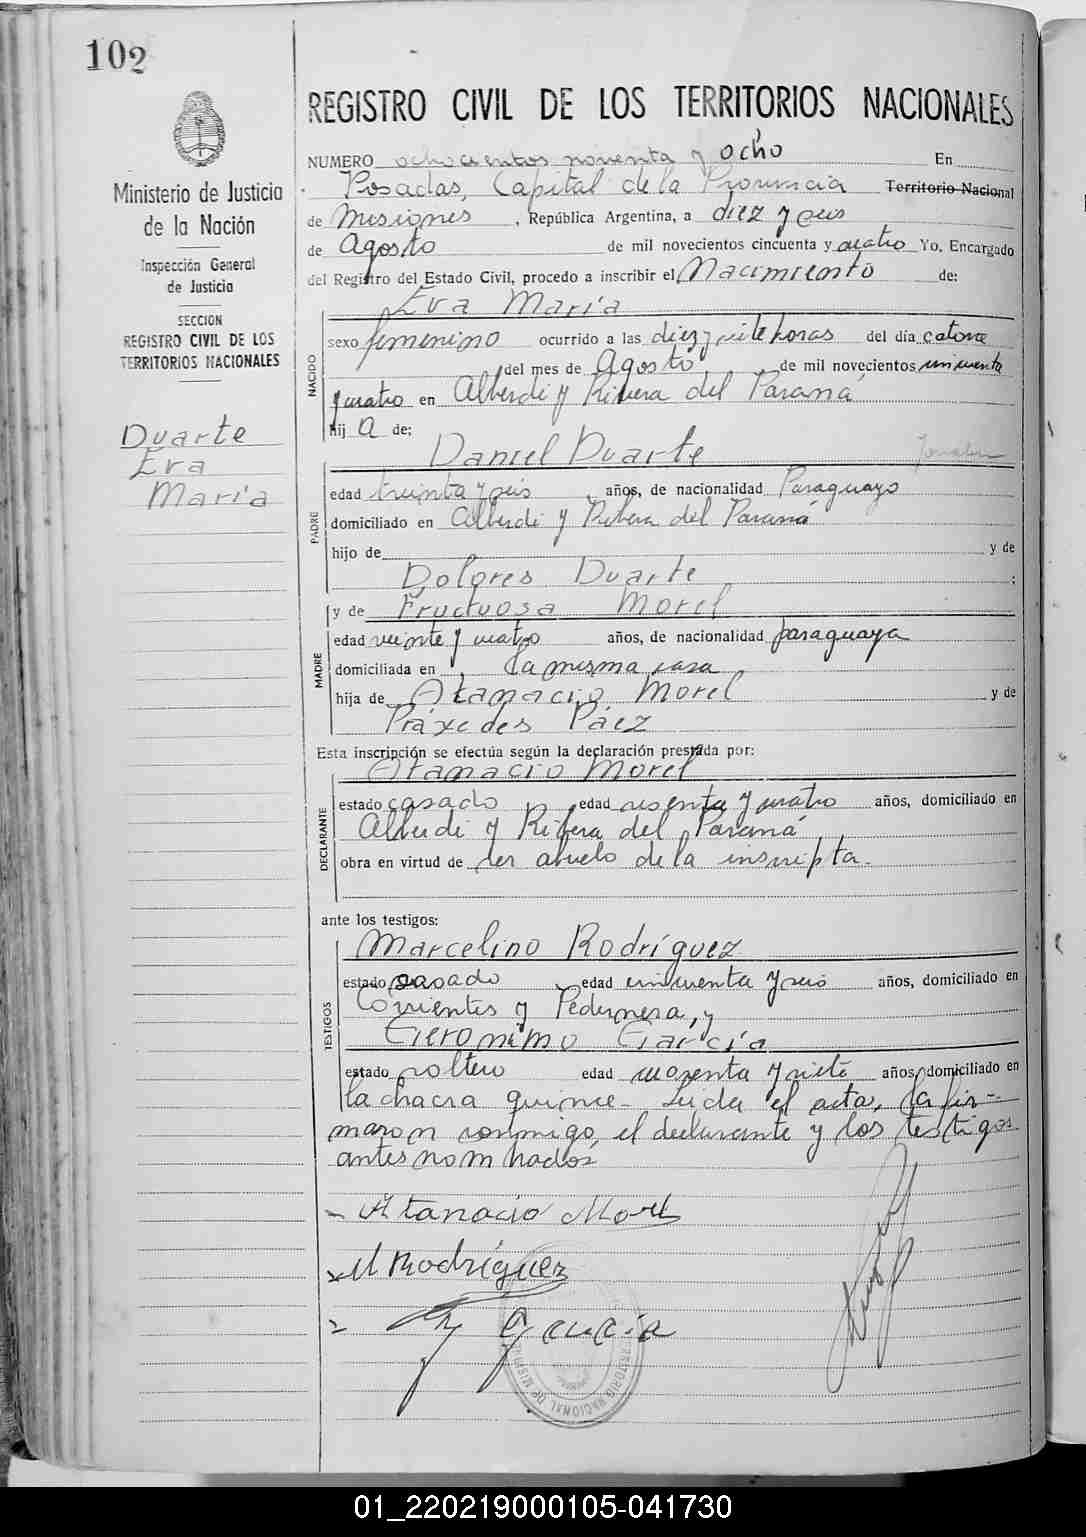 102
Ministerio de Justicia
de la Nación
Inspección General
de Justicia
SECCION
REGISTRO CIVIL DE LOS
TERRITORIOS NACIONALES
Duarte
Eva
María
REGISTRO CIVIL DE LOS TERRITORIOS NACIONALES
NUMERO ochocientos noventa y ocho En
Posadas, Capital de la Provincia Territorio Nacional
de Misiones, República Argentina, a diez y seis
de Agosto de mil novecientos cincuenta y cuatro Yo, Encargado
del Registro del Estado Civil, procedo a inscribir el Nacimiento de:
Eva María
NACIDO
sexo femenino ocurrido a las diez y siete horas del día catorce
del mes de Agosto de mil novecientos cincuenta
y cuatro en Alberdi y Ribera del Paraná
hij a de:
Daniel Duarte
PADRE
edad treinta y seis años, de nacionalidad Paraguayo
domiciliado en Alberdi y Ribera del Paraná
hijo de y de
Dolores Duarte ;
y de Fructuosa Morel
MADRE
edad veinte y cuatro años, de nacionalidad paraguaya
domiciliada en La misma casa
hija de Atanacio Morel y de
Práxedes Páez
Esta inscripción se efectúa según la declaración prestada por:
Atanacio Morel
DECLARANTE
estado casado edad sesenta y cuatro años, domiciliado en
Alberdi y Ribera del Paraná
obra en virtud de ser abuelo de la inscripta.
ante los testigos:
Marcelino Rodríguez
TESTIGOS
estado casado edad cincuenta y seis años, domiciliado en
Corrientes y Pedernera, y
Geronimo García
estado soltero edad cuarenta y siete años, domiciliado en
la chacra quince- Leida el acta, la fir-
maron conmigo, el declarante y los testigos
antes nombrados
Atanacio Morel
M Rodríguez
García
TERRITORIO NACIONAL DE MISIONES
01_220219000105-041730